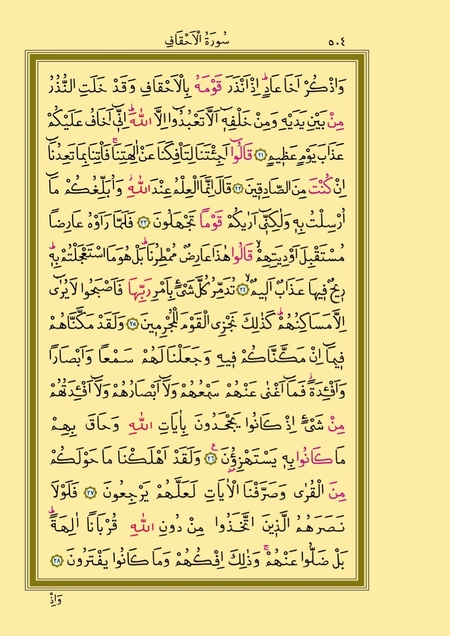 سُورَةُ الْاَحْقَافِ ٥٠٤
وَاذْكُرْ اَخَا عَادٍۜ اِذْ اَنْذَرَ قَوْمَهُ بِالْاَحْقَافِ وَقَدْ خَلَتِ النُّذُرُ
مِنْ بَيْنِ يَدَيْهِ وَمِنْ خَلْفِه۪ٓ اَلَّا تَعْبُدُٓوا اِلَّا اللّٰهَۜ اِنّ۪ٓي اَخَافُ عَلَيْكُمْ
عَذَابَ يَوْمٍ عَظ۪يمٍ ﴿٢١﴾ قَالُٓوا اَجِئْتَنَا لِتَأْفِكَنَا عَنْ اٰلِهَتِنَاۚ فَأْتِنَا بِمَا تَعِدُنَٓا
اِنْ كُنْتَ مِنَ الصَّادِق۪ينَ ﴿٢٢﴾ قَالَ اِنَّمَا الْعِلْمُ عِنْدَ اللّٰهِۘ وَاُبَلِّغُكُمْ مَٓا
اُرْسِلْتُ بِه۪ وَلٰكِنّ۪ٓي اَرٰيكُمْ قَوْمًا تَجْهَلُونَ ﴿٢٣﴾ فَلَمَّا رَاَوْهُ عَارِضًا
مُسْتَقْبِلَ اَوْدِيَتِهِمْۙ قَالُوا هٰذَا عَارِضٌ مُمْطِرُنَاۜ بَلْ هُوَ مَا اسْتَعْجَلْتُمْ بِه۪ۜ
ر۪يحٌ ف۪يهَا عَذَابٌ اَل۪يمٌۙ ﴿٢٤﴾ تُدَمِّرُ كُلَّ شَيْءٍ بِاَمْرِ رَبِّهَا فَاَصْبَحُوا لَا يُرٰٓى
اِلَّا مَسَاكِنُهُمْۜ كَذٰلِكَ نَجْزِي الْقَوْمَ الْمُجْرِم۪ينَ ﴿٢٥﴾ وَلَقَدْ مَكَّنَّاهُمْ
ف۪يمَٓا اِنْ مَكَّنَّاكُمْ ف۪يهِ وَجَعَلْنَا لَهُمْ سَمْعًا وَاَبْصَارًا
وَاَفْـِٔدَةًۘ فَمَٓا اَغْنٰى عَنْهُمْ سَمْعُهُمْ وَلَٓا اَبْصَارُهُمْ وَلَٓا اَفْـِٔدَتُهُمْ
مِنْ شَيْءٍ اِذْ كَانُوا يَجْحَدُونَ بِاٰيَاتِ اللّٰهِ وَحَاقَ بِهِمْ
مَا كَانُوا بِه۪ يَسْتَهْزِؤُ۫نَ۟ ﴿٢٦﴾ وَلَقَدْ اَهْلَكْنَا مَا حَوْلَكُمْ
مِنَ الْقُرٰى وَصَرَّفْنَا الْاٰيَاتِ لَعَلَّهُمْ يَرْجِعُونَ ﴿٢٧﴾ فَلَوْلَا
نَصَرَهُمُ الَّذ۪ينَ اتَّخَذُوا مِنْ دُونِ اللّٰهِ قُرْبَانًا اٰلِهَةًۜ
بَلْ ضَلُّوا عَنْهُمْۚ وَذٰلِكَ اِفْكُهُمْ وَمَا كَانُوا يَفْتَرُونَ ﴿٢٨﴾
وَاِذْ